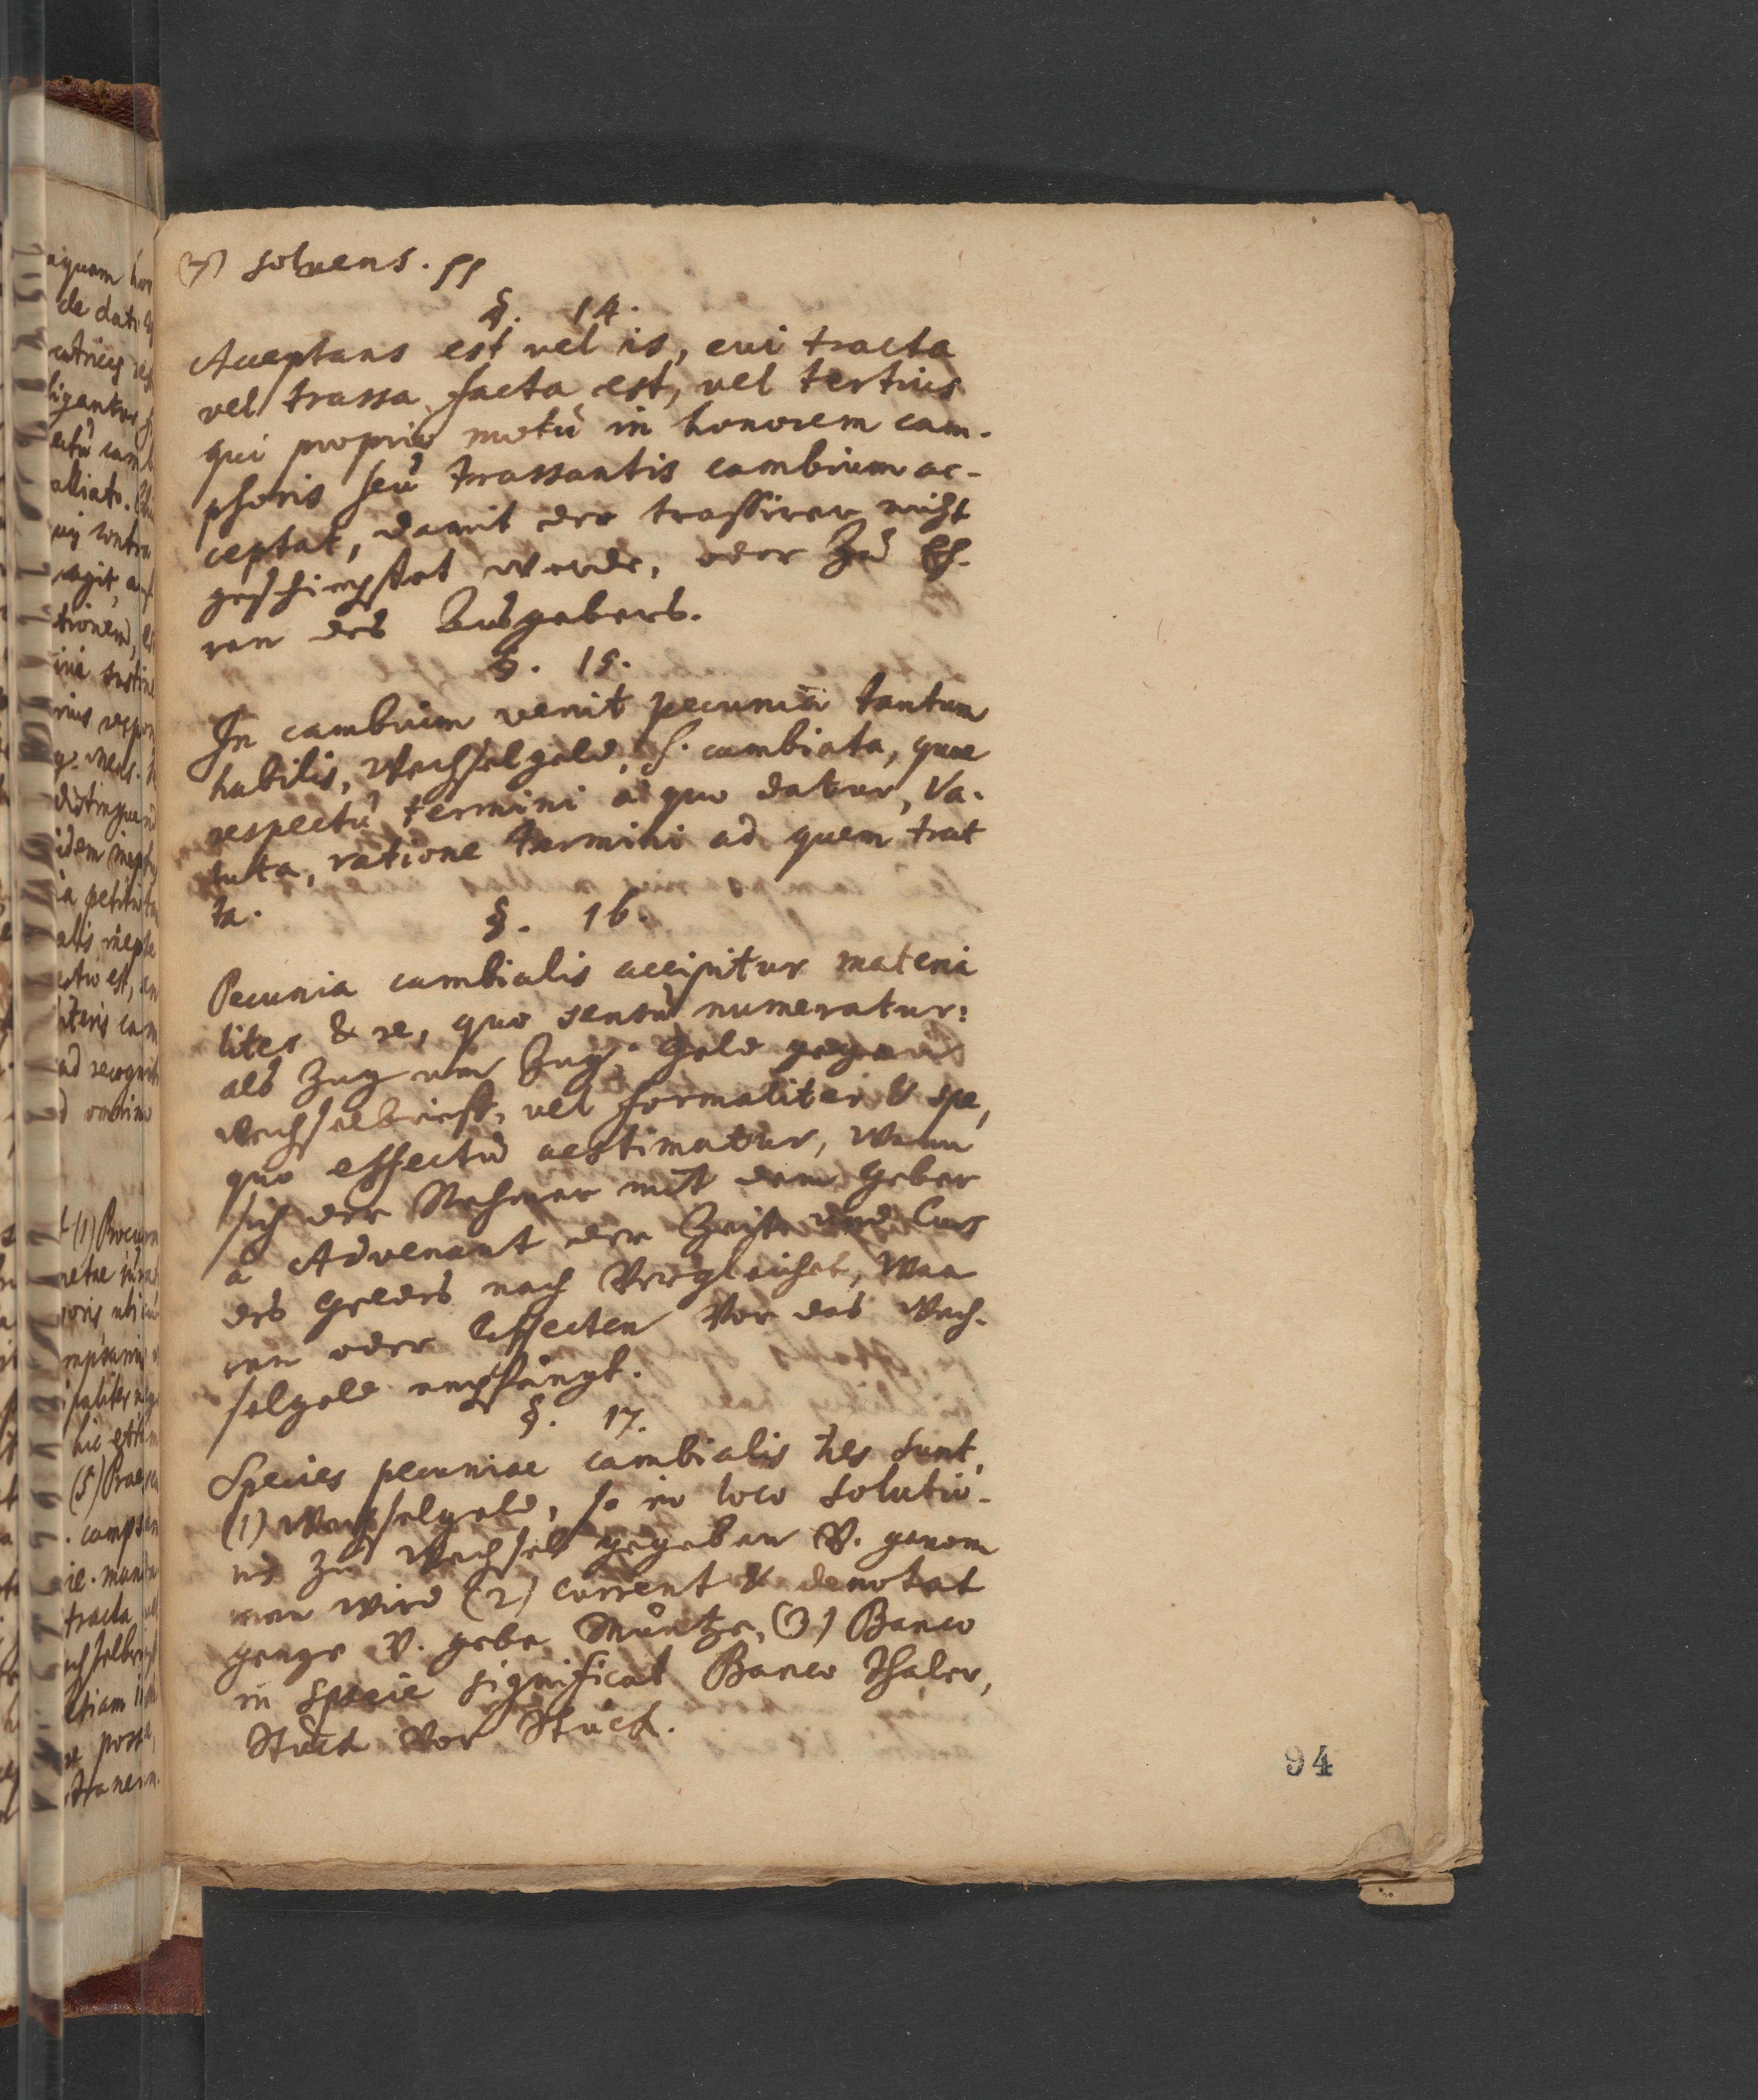 (7) solvens. pp
§. 14.
Acceptans est vel is, cui tracta
vel trassa facta est, vel tertius
qui proprio motu in honorem cam-
psoris seu trassantis cambium ac-
ceptat, damit der trassirer nicht
geschimpfet werde, oder Zu Eh-
ren des Ausgebers.
§. 15.
In cambium venit pecunia tantum
habilis, Wechselgeld, s. cambiata, quae
respectu termini a quo datur, Va-
luta, ratione termini ad quem trat
ta.
§. 16.
Pecunia cambialis accipitur materia
liter & re, quo sensu numeratur:
als Zug um Zug, Geld gegen
Wechselbrieff, vel formaliter & spe,
quo effectu aestimatur, Wenn
sich der Nehmer mit dem Geber
à Advenant der Zeit und Curs
des Geldes nach Vergleichet, Waa
ren oder Effecten Vor das Wech-
selgeld empfängt.
§. 17.
Species pecuniae cambialis tres sunt,
(1) Wechselgeld, so in loco solutio-
nis zu Wechsel gegeben V. genom
men wird (2) Current & denotat
genge V. gebe Müntze, (3) Banco
in specie significat Banco Thaler,
Stück Vor Stück.
94